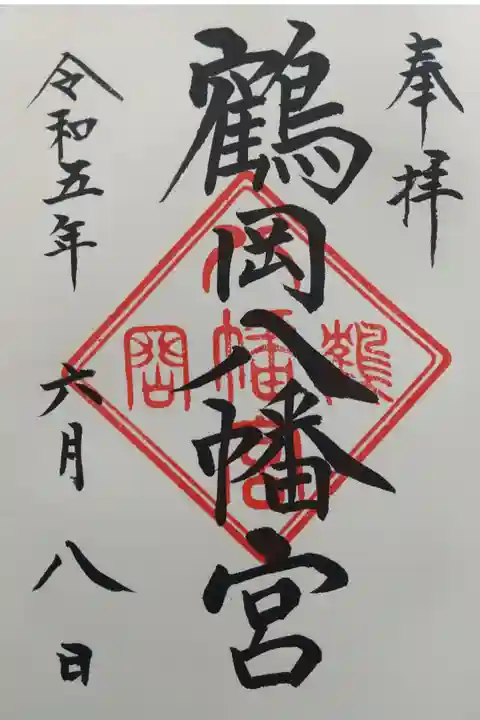 奉拝
鶴岡八幡宮
令和五年 六月 八日
鶴
八幡宮
岡